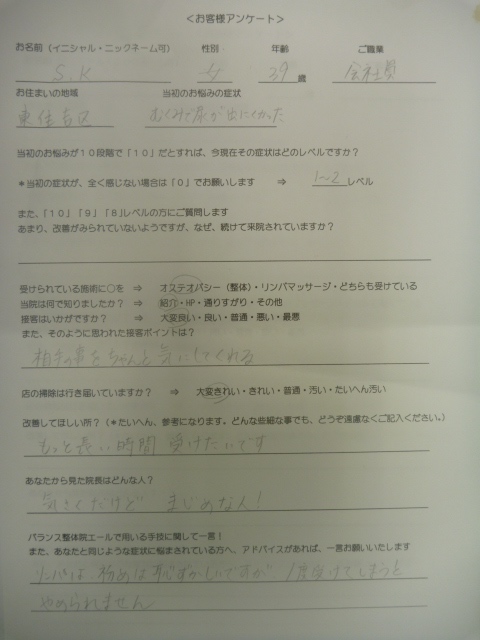 ＜お客様アンケート＞
お名前（イニシャル・ニックネーム可） 性別 年齢 ご職業
S.K 女 39 歳 会社員
お住まいの地域 当初のお悩みの症状
東住吉区 むくみで尿が出にくかった
当初のお悩みが１０段階で「１０」だとすれば、今現在その症状はどのレベルですか？
＊当初の症状が、全く感じない場合は「０」でお願いします ⇒ 1～2 レベル
また、「１０」「９」「８」レベルの方にご質問します
あまり、改善がみられていないようですが、なぜ、続けて来院されていますか？
受けられている施術に○を ⇒ オステオパシー（整体）・リンパマッサージ・どちらも受けている
当院は何で知りましたか？ ⇒ 紹介・HP・通りすがり・その他
接客はいかがですか？ ⇒ 大変良い・良い・普通・悪い・最悪
また、そのように思われた接客ポイントは？
相手の事をちゃんと気にしてくれる
店の掃除は行き届いていますか？ ⇒ 大変きれい・きれい・普通・汚い・たいへん汚い
改善してほしい所？（＊たいへん、参考になります。どんな些細な事でも、どうぞ遠慮なくご記入ください。）
もっと長い時間 受けたいです
あなたから見た院長はどんな人？
気さくだけど まじめな人！
バランス整体院エールで用いる手技に関して一言！
また、あなたと同じような症状に悩まされている方へ、アドバイスがあれば、一言お願いいたします
リンパは、初めは恥ずかしいですが 1度受けてしまうと
やめられません